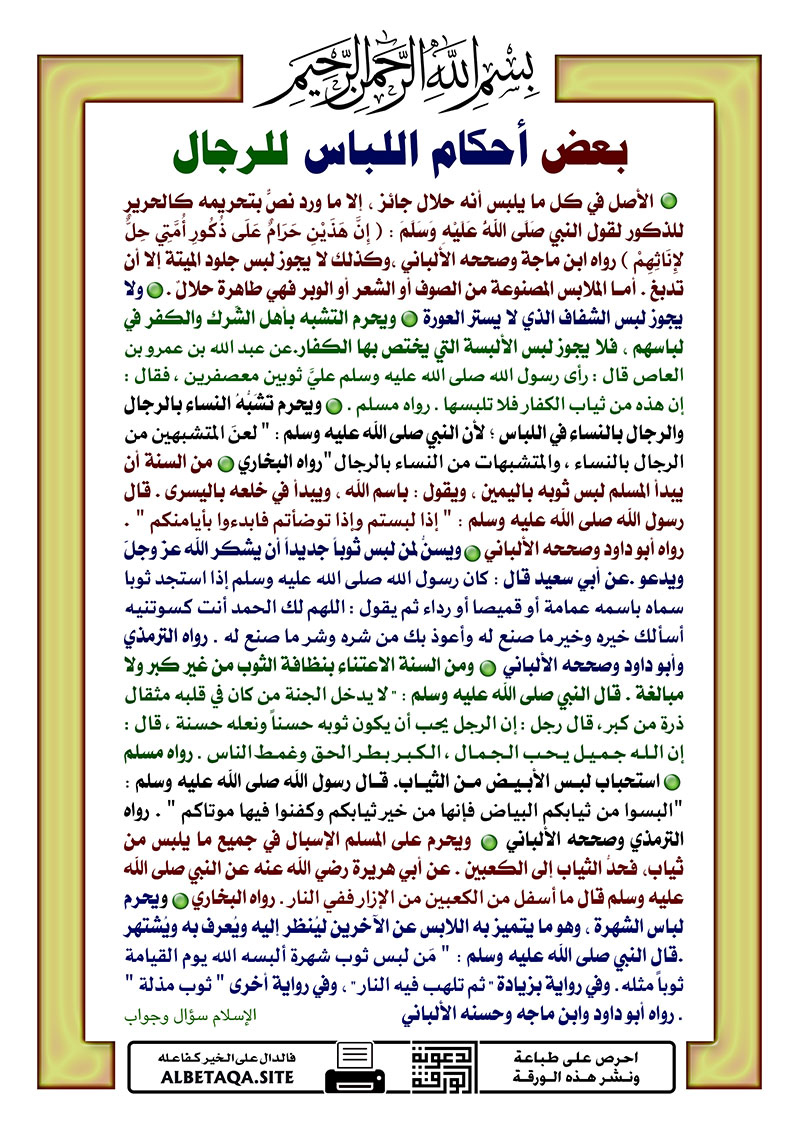 بِسْمِ اللَّهِ الرَّحْمَنِ الرَّحِيمِ
بعض أحكام اللباس للرجال
الأصل في كل ما يلبس أنه حلال جائز ، إلا ما ورد نصٌّ بتحريمه كالحرير
للذكور لقول النبي صَلَّى اللهُ عَلَيْهِ وَسَلَّمَ : ( إِنَّ هَذَيْنِ حَرَامٌ عَلَى ذُكُورِ أُمَّتِي حِلٌّ
لِإِنَاثِهِمْ ) رواه ابن ماجة وصححه الألباني ،وكذلك لا يجوز لبس جلود الميتة إلا أن
تدبغ . أمـا الملابس المصنوعة من الصوف أو الشعر أو الوبر فهي طاهرة حلالٌ . ولا
يجوز لبس الشفاف الذي لا يستر العورة ويحرم التشبه بأهل الشّرك والكفر في
لباسهم ، فلا يجوز لبس الألبسة التي يختص بها الكفار.عن عبد الله بن عمرو بن
العاص قال : رأى رسول الله صلى الله عليه وسلم عليَّ ثوبين معصفرين ، فقال :
إن هذه من ثياب الكفار فلا تلبسها . رواه مسلم . ويحرم تشَبُّهُ النساء بالرجال
والرجال بالنساء في اللباس ؛ لأن النبي صلى الله عليه وسلم : " لعنَ المتشبهين من
الرجال بالنساء ، والمتشبهات من النساء بالرجال "رواه البخاري من السنة أن
يبدأ المسلم لبس ثوبه باليمين ، ويقول : باسم الله ، ويبدأ في خلعه باليسرى . قال
رسول الله صلى الله عليه وسلم : " إذا لبستم وإذا توضأتم فابدءوا بأيامنكم " .
رواه أبو داود وصححه الألباني ويسنُّ لمن لبس ثوباً جديداً أن يشكر الله عز وجلَ
ويدعو .عن أبي سعيد قال : كان رسول الله صلى الله عليه وسلم إذا استجد ثوبا
سماه باسمه عمامة أو قميصا أو رداء ثم يقول : اللهم لك الحمد أنت كسوتنيه
أسألك خيره وخير ما صنع له وأعوذ بك من شره وشر ما صنع له . رواه الترمذي
وأبو داود وصححه الألباني ومن السنة الاعتناء بنظافة الثوب من غير كبر ولا
مبالغة . قال النبي صلى الله عليه وسلم : " لا يدخل الجنة من كان في قلبه مثقال
ذرة من كبر ، قال رجل : إن الرجل يحب أن يكون ثوبه حسناً ونعله حسنة ، قال :
إن الـلـه جـمـيـل يـحـب الـجـمـال ، الـكـبـر بـطـر الـحـق وغـمـط الناس . رواه مسلم
استحباب لـبـس الأبـيـض مـن الـثـيـاب. قـال رسول الله صلى الله عليه وسلم :
"البسوا من ثيابكم البياض فإنها من خير ثيابكم وكفنوا فيها موتاكم " . رواه
الترمذي وصححه الألباني ويحرم على المسلم الإسبال في جميع ما يلبس من
ثياب، فحدُّ الثياب إلى الكعبين . عن أبي هريرة رضي الله عنه عن النبي صلى الله
عليه وسلم قال ما أسفل من الكعبين من الإزار ففي النار . رواه البخاري ويحرم
لباس الشهرة ، وهو ما يتميز به اللابس عن الآخرين ليُنظر إليه ويُعرف به ويُشتهر
.قال النبي صلى الله عليه وسلم : " مَن لبس ثوب شهرة ألبسه الله يوم القيامة
ثوباً مثله . وفي رواية بزيادة " ثم تلهب فيه النار" ، وفي رواية أخرى " ثوب مذلة "
. رواه أبو داود وابن ماجه وحسنه الألباني
الإسلام سؤال وجواب
احرص على طباعة
ونـشـر هـذه الـورقـة
الدعوية
الورقة
فالدال على الخير كفاعله
ALBETAQA.SITE